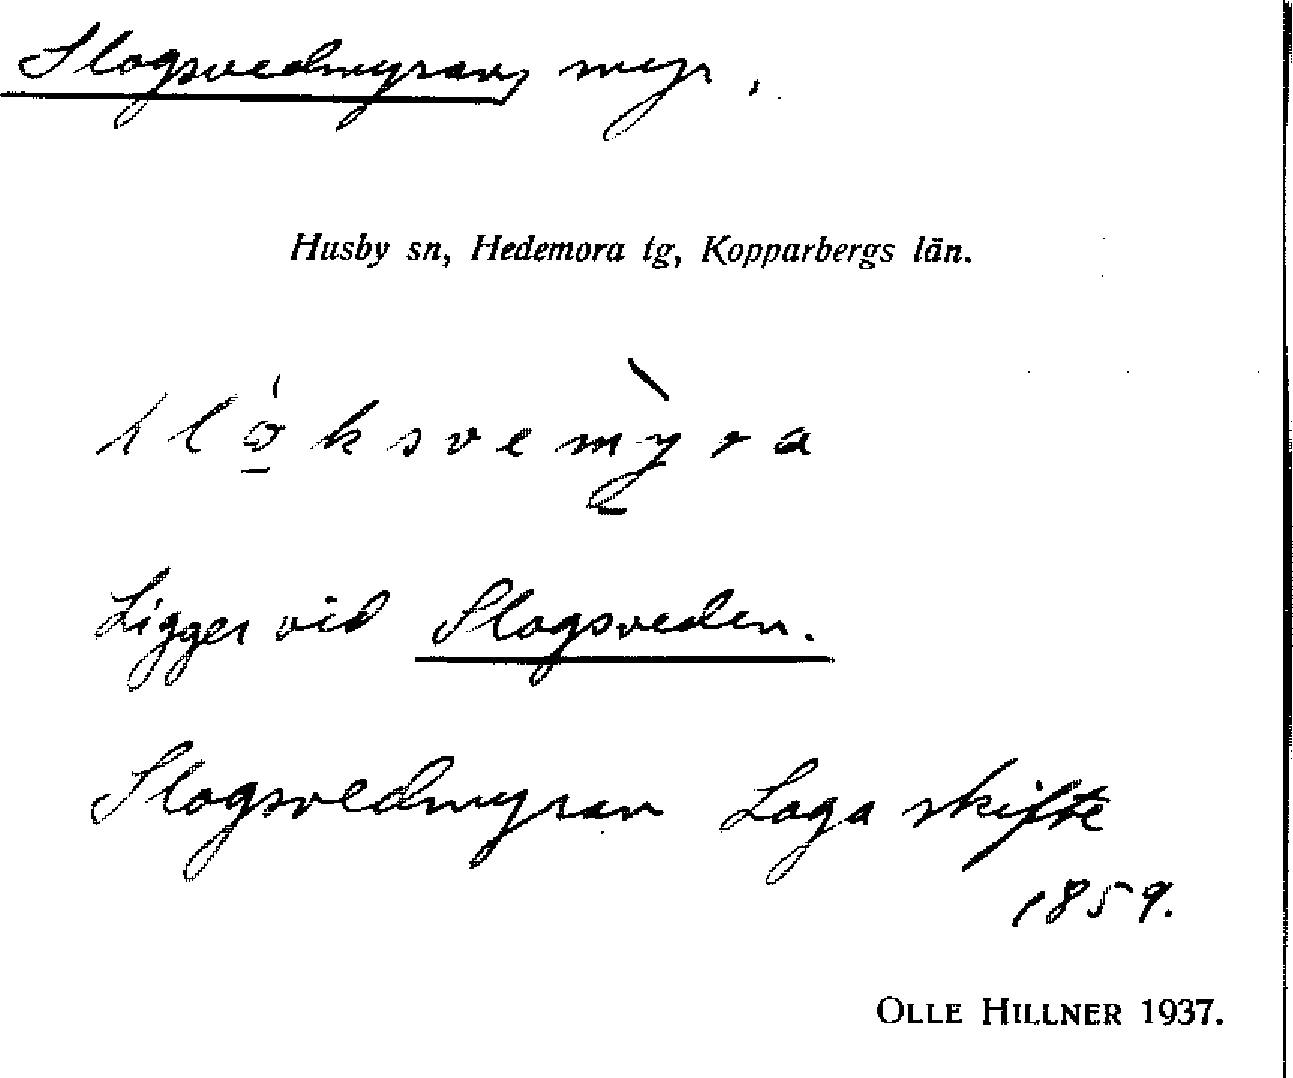 Slogsvedmyran, myr.
Husby sn, Hedemora tg, Kopparbergs län.
Ligger vid Slogsveden.
Slogsvedmyran Laga skifte
1859.
OLLE HILLNER 1937.